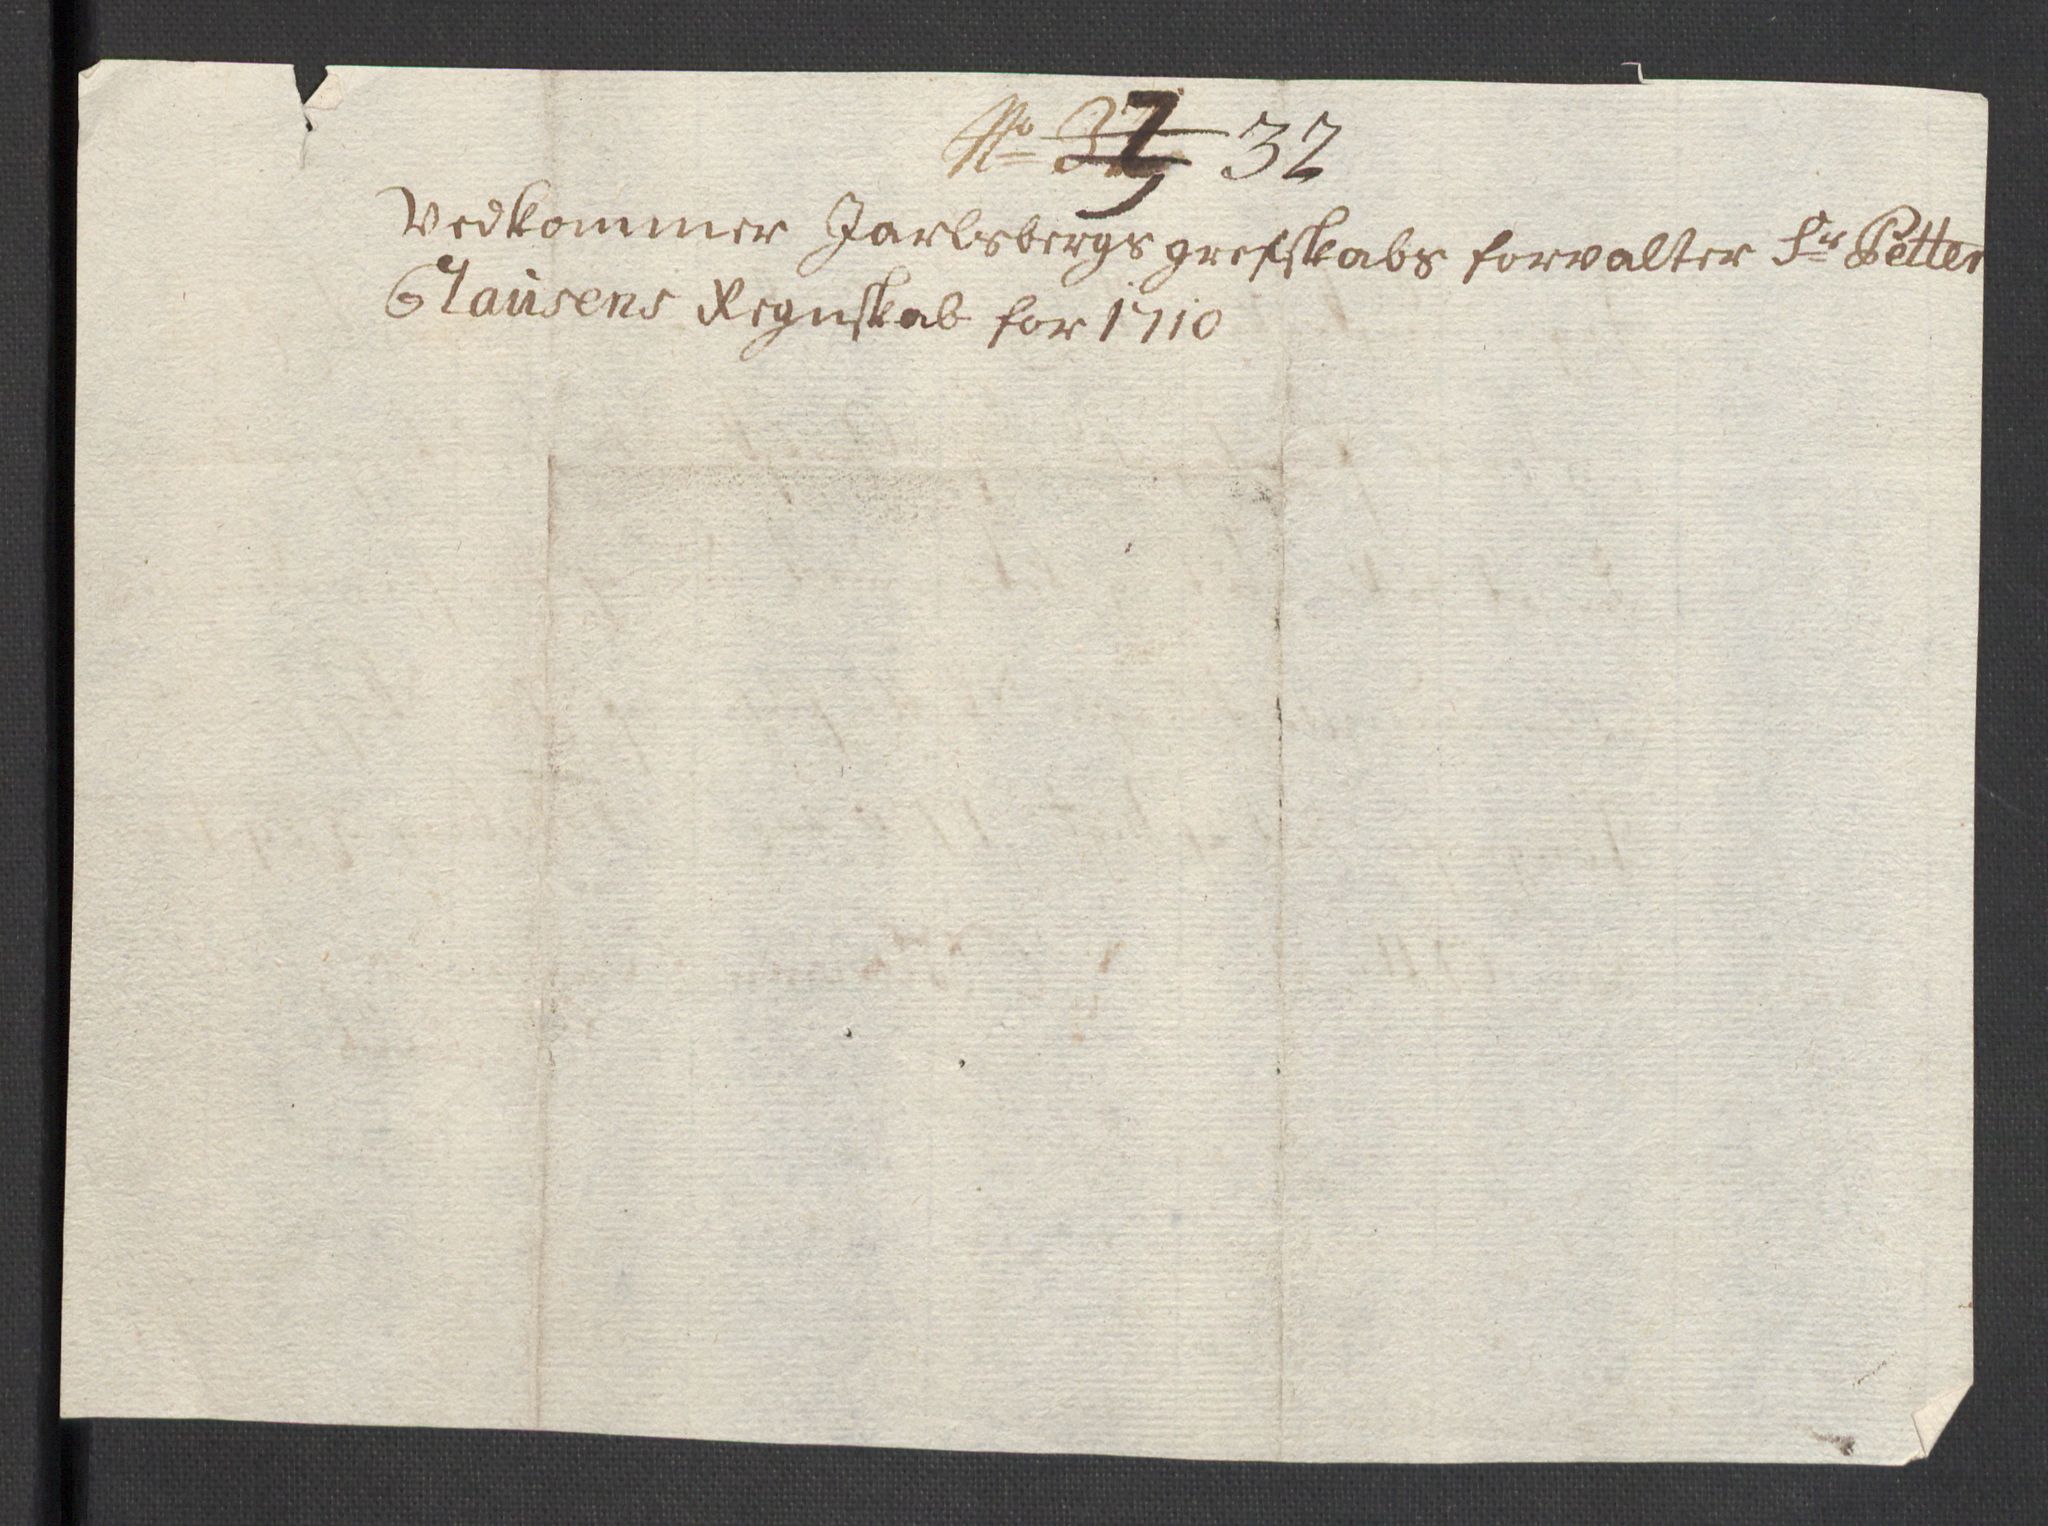 No 32
Vedkommer Jarlsbergs grefskabs forvalter Sr Petter
Clausens Regnskab for 1710